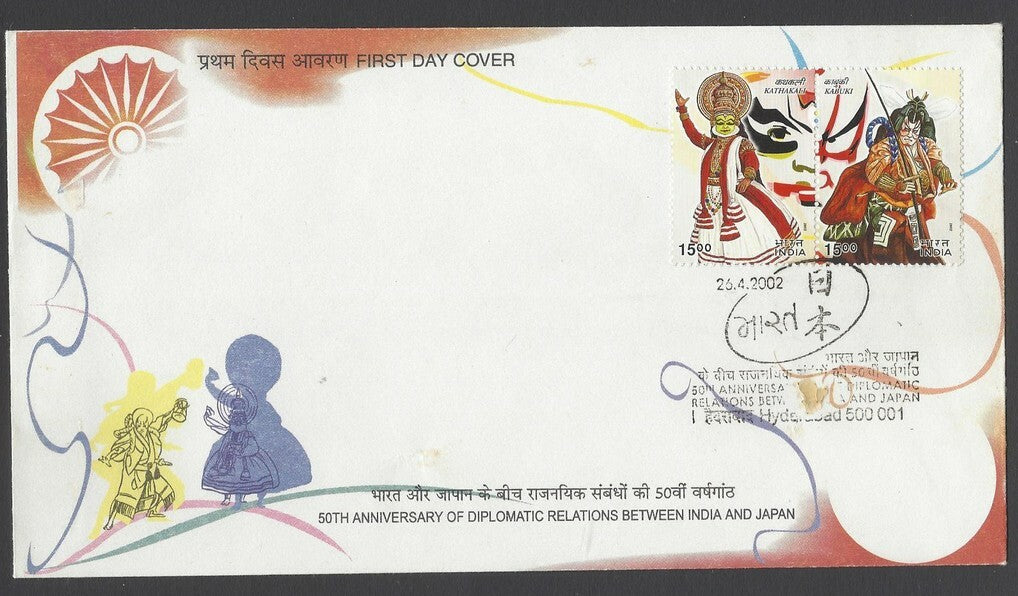 प्रथम दिवस आवरण FIRST DAY COVER
कथकली
KATHAKALI
काबुकी
KABUKI
1500
भारत
INDIA
2002
1500
भारत
INDIA
2002
26.4.2002
日本
भारत
भारत और जापान
के बीच राजनयिक संबंधों की 50वीं वर्षगांठ
50TH DIPLOMATIC
RELATIONS AND JAPAN
हैदराबाद Hyderabad 500 001
भारत और जापान के बीच राजनयिक संबंधों की 50वीं वर्षगांठ
50TH ANNIVERSARY OF DIPLOMATIC RELATIONS BETWEEN INDIA AND JAPAN